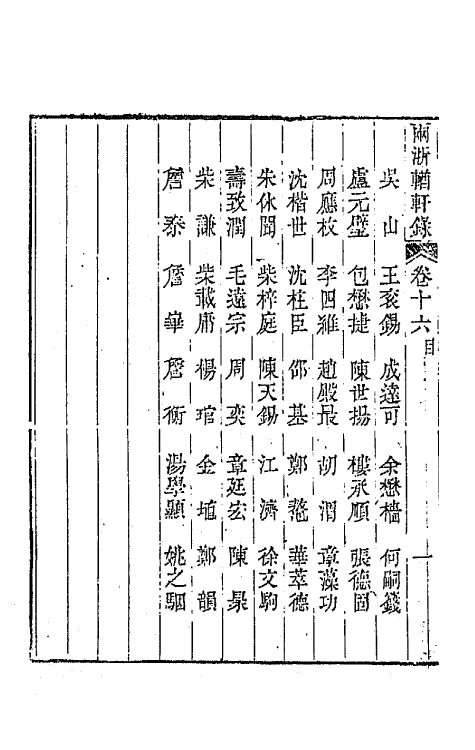 兩浙輶軒錄 卷十六 目 一
吳山 王袞錫 成遠可 余懋檣 何嗣籛
盧元璧 包懋捷 陳世揚 樓承順 張德固
周應枚 李四維 趙殿最 胡渭 章藻功
沈楷世 沈柱臣 邵基 鄭鼇 華萃德
朱休閒 柴梓庭 陳天錫 江濟 徐文駒
壽致潤 毛遠宗 周奕 章廷宏 陳景
柴謙 柴載庸 楊琯 金埴 鄭韻
詹泰 詹華 詹衡 湯學顯 姚之駰